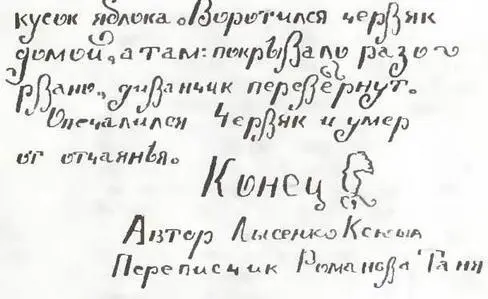 кусок яблока. Воротился червяк
домой, а там: покрывало разо
рвано, диванчик перевёрнут.
Опечалился Червяк и умер
от отчаянья.
Конец
Автор Лысенко Ксюша
Переписчик Романова Таня